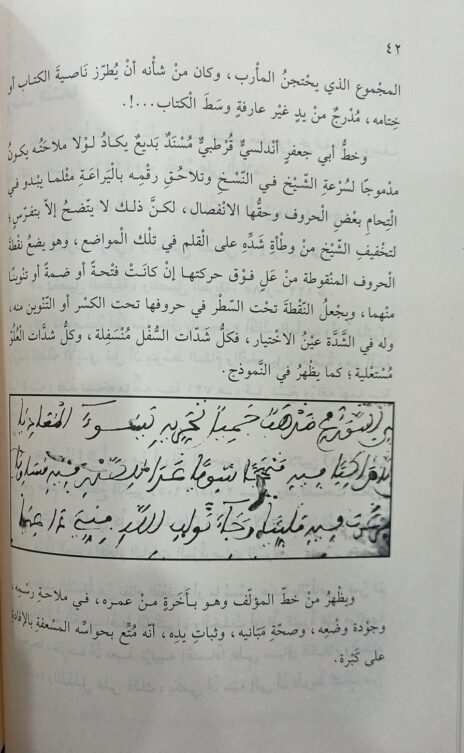 ٤٢
المجْموع الذي يحْتجنُ المأْرب، وكان منْ شأْنه أنْ يُطرّز نَاصيةَ الكتاب أو
خِتامه، مُدْرجٌ منْ يدٍ غيْر عارفةٍ وسَطَ الْكتاب...!.
وخطُّ أبي جعفرٍ أندلسيٌّ قُرْطبيٌّ مُسْنَدٌ بَديعٌ يكادُ لوْلا ملاحَتُه يكونُ
مدْموجًا لسُرْعة الشَّيْخ في النَّسْخ وتلاحُقِ رقْمِه بالْيَراعةِ مثْلما يبْدو في
الْتِحام بعْضِ الحروف وحقُّها الانْفصال، لكنَّ ذلك لا يتّضحُ إلاّ بتفرّسٍ؛
لتخْفيفِ الشّيْخ منْ وطْأةِ شَدِّه على القلم في تلْك المواضع، وهو يضعُ نقْطةَ
الحروف المنْقوطة منْ عَلٍ فوْق حركتها إنْ كانَتْ فتْحةً أو ضمةً أو تنْوينًا
منْهما، ويجْعلُ النّقْطةَ تحْت السّطْر في حروفها تحت الكسْر أو التّنْوين منه،
وله في الشَّدَّة عيْنُ الاخْتيار، فكلُّ شَدّات السُّفْل مُنْسَفِلة، وكلُّ شدَّات الْعُلُوّ
مُسْتَعْلية؛ كما يظْهرُ في النَّموذج.
ويظْهرُ منْ خطّ المؤلّف وهو بأَخَرةٍ منْ عمره، في ملاحةِ رسْمِه،
وجوْدة وضْعِه، وصحّةِ مَبَانيه، وثباتِ يدِه، أنّه مُتّع بحواسّه المسْعفةِ بالإفادةِ
على كَبْرة.